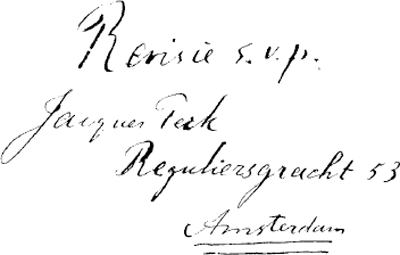 Revisie s.v.p.
Jacques Perk
Reguliersgracht 53
Amsterdam